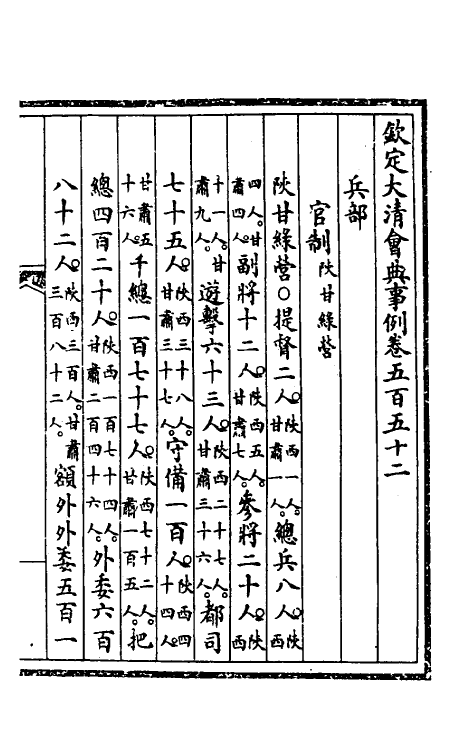 欽定大清會典事例卷五百五十二
兵部
官制陝甘綠營
陝甘綠營○提督二人。陝西一人。甘肅一人。總兵八人。陝西
四人。甘肅四人。副將十二人。陝西五人。甘肅七人。參將二十人。陝西
十一人。甘肅九人。遊擊六十三人。陝西二十七人。甘肅三十六人。都司
七十五人。陝西三十八人。甘肅三十七人。守備一百人。陝西四十四人。
甘肅五十六人。千總一百七十七人。陝西七十二人。甘肅一百五人。把
總四百二十人。陝西一百七十四人。甘肅二百四十六人。外委六百
八十二人。陝西三百人。甘肅三百八十二人。額外外委五百一